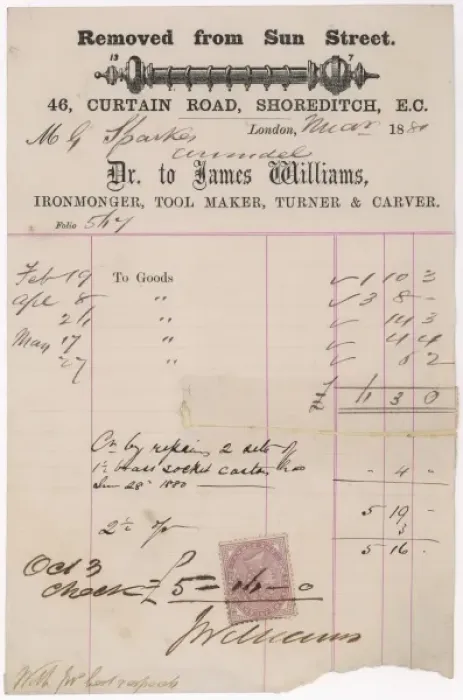 Removed from Sun Street.
13 7
46, CURTAIN ROAD, SHOREDITCH, E.C.
London, 188
M G Sparkes
Arundel
Dr. to James Williams,
IRONMONGER, TOOL MAKER, TURNER & CARVER.
Folio 567
Feb 19 To Goods ✓ 1 10 3
Apl 8 " ✓ 3 8 -
" ✓ 14 3
May 17 " ✓ 4 4
27 " ✓ 6 2
6 3 0
Cr by repairs 2 sets of
1½ brass socket castors - 4 "
28th 1880
5 19 -
2½ % 3
5 16 -
Oct 3
check £ 5 - 16 - 0
J Williams
With